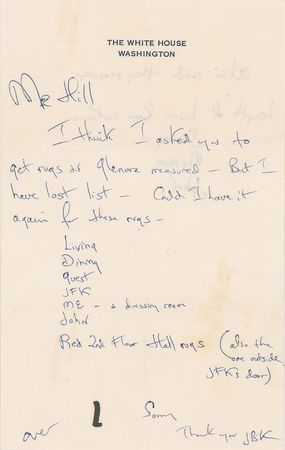 THE WHITE HOUSE
WASHINGTON
Mr Hill
I think I asked you to
get rugs in Glenora measured - But I
have lost list - Could I have it
again for these rugs -
Living
Dining
guest
JFK
ME - + dressing room
John
Red 2nd Floor Hall rugs (also the
one outside
JFK's door)
Sorry
Thank you JBK
over